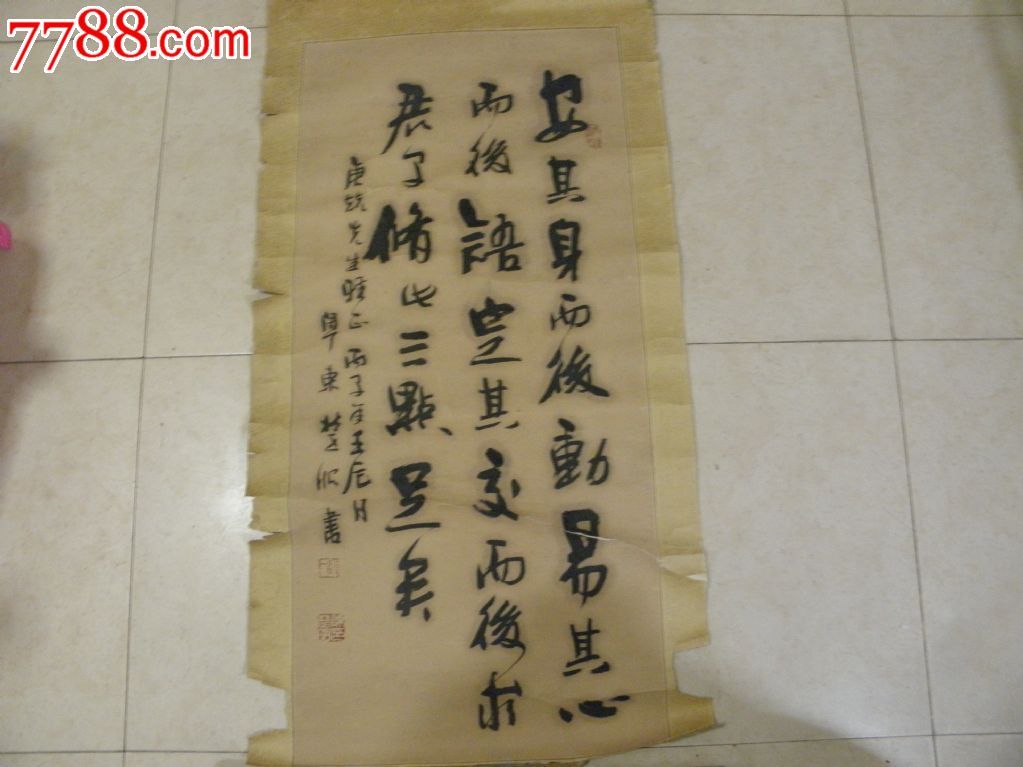 7788.com
安其身而後動易其心
而後語定其交而後求
君子脩此三點足矣
先生雅正丙子年壬辰月
粤東 楚 書